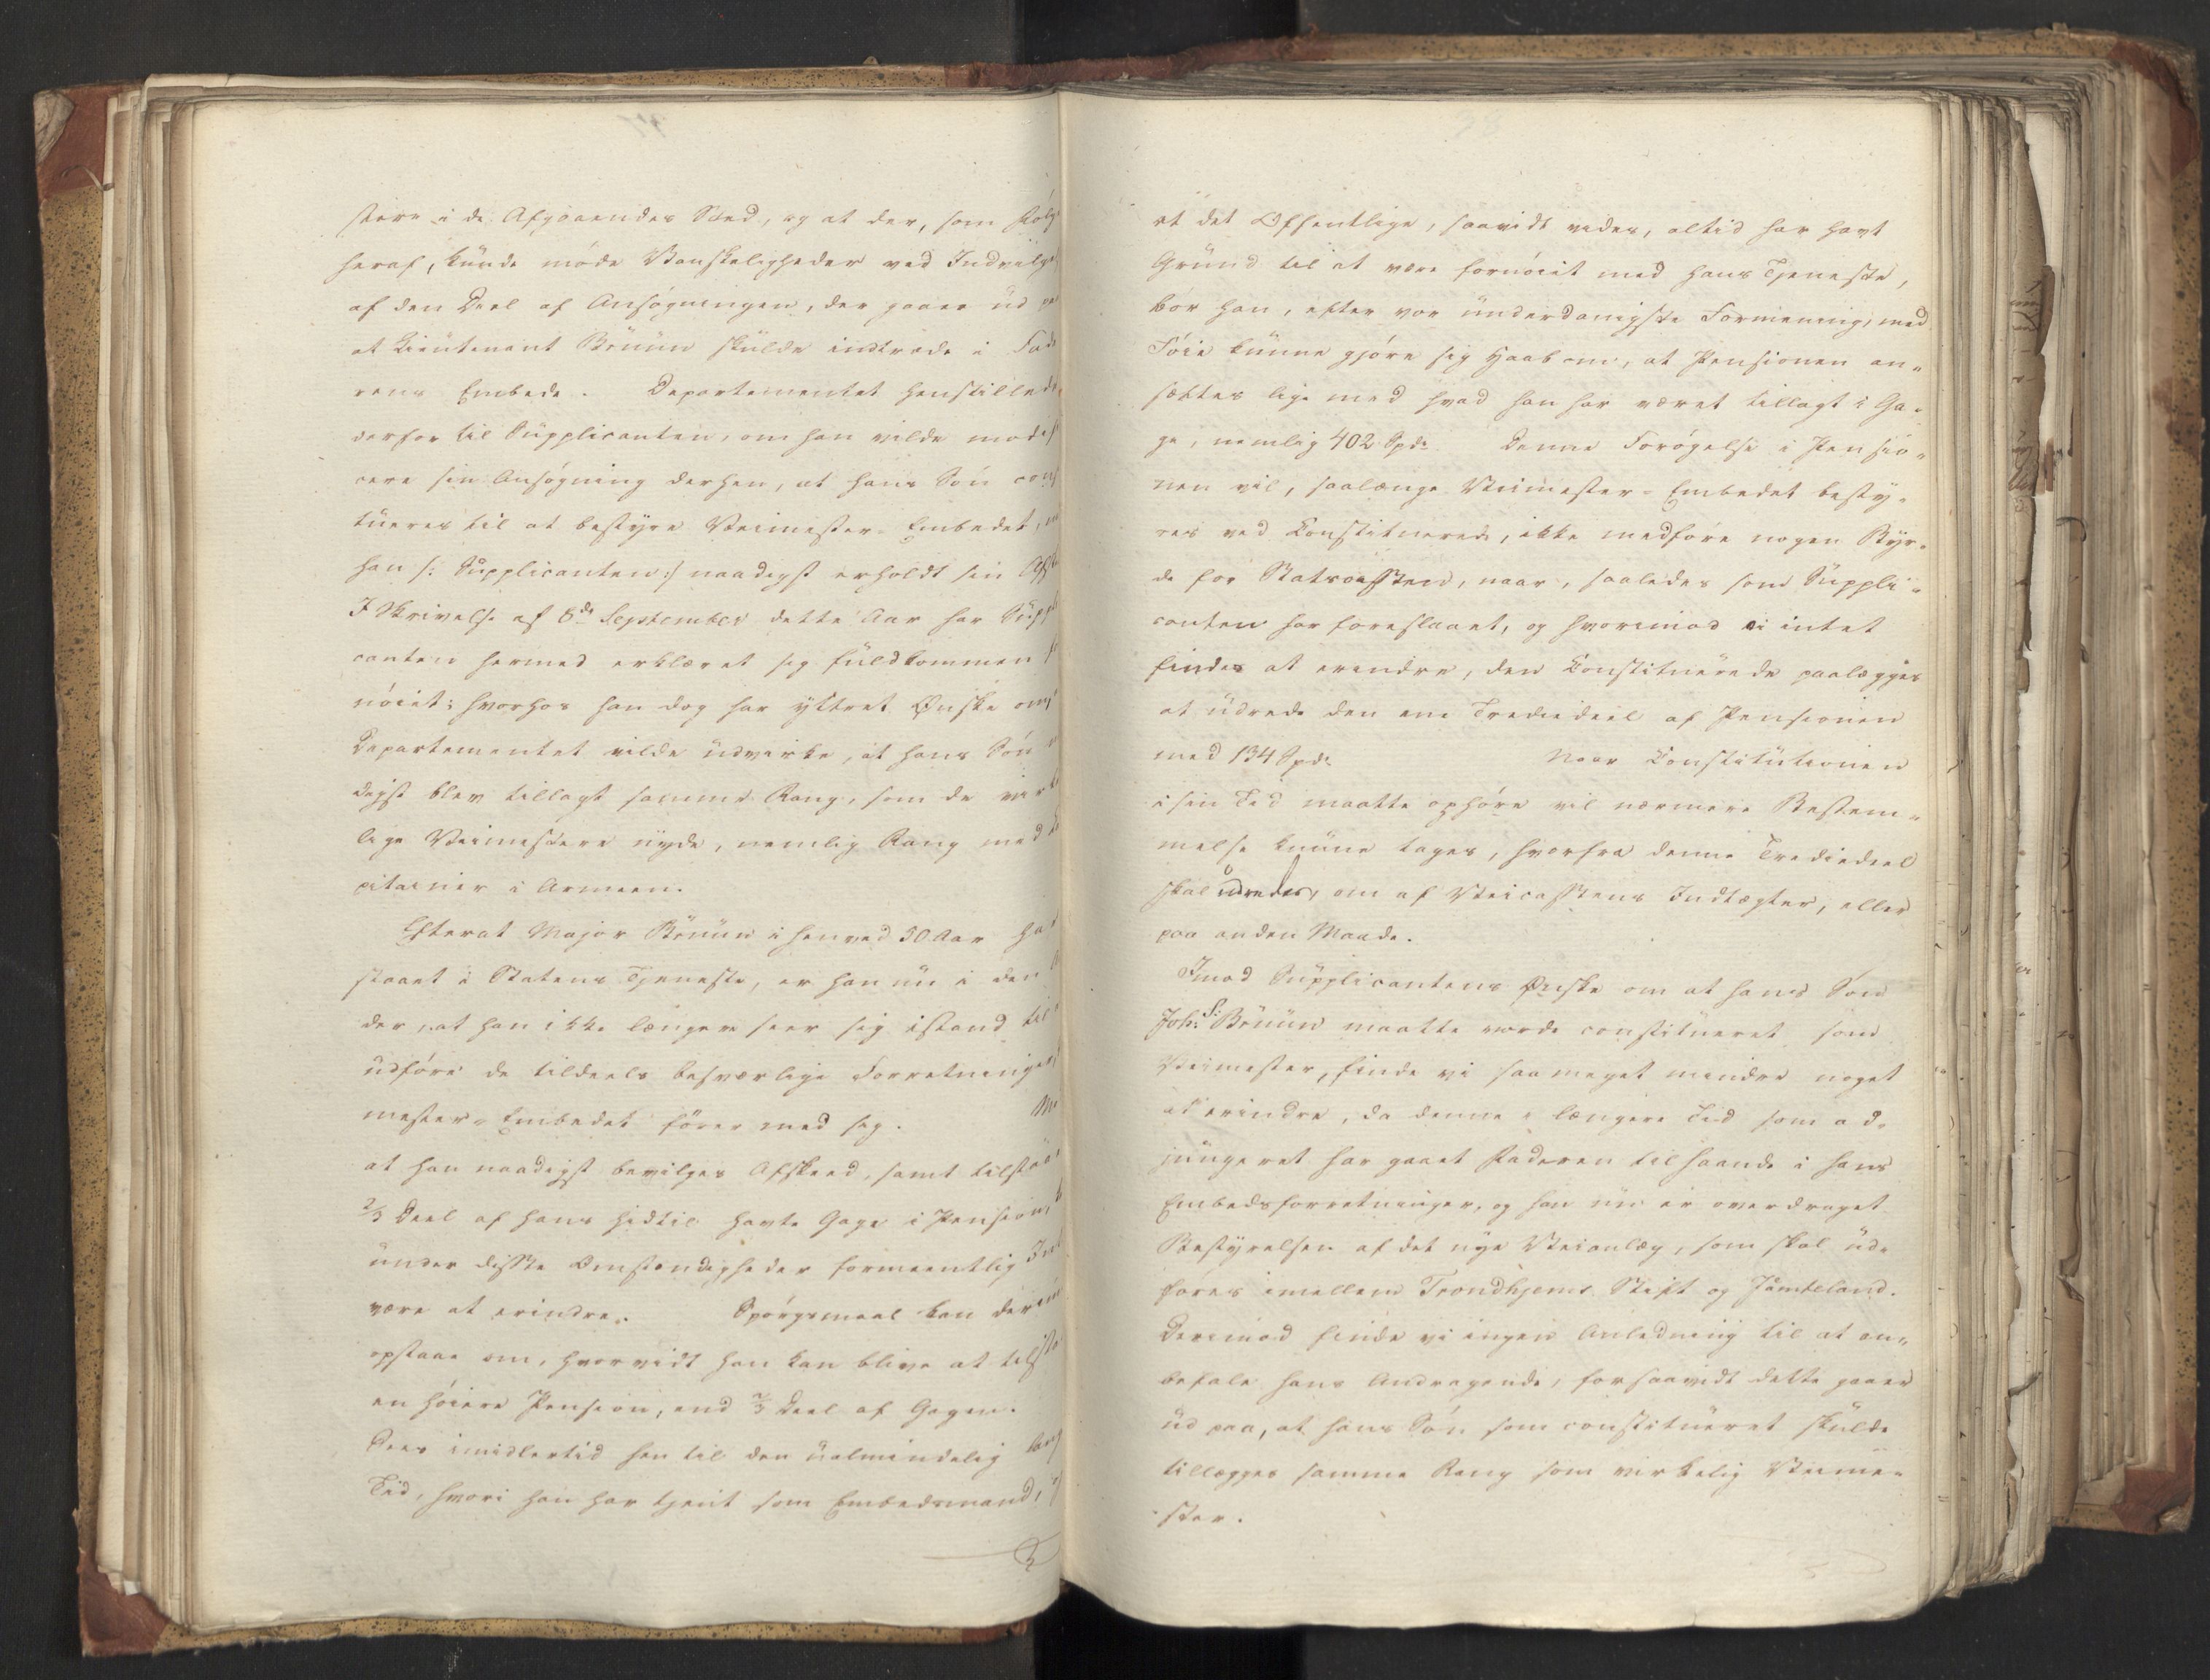 stere i de Afgaaendes Sted, og at der, som Følg
heraf, kunde møde Vanskeligheder ved Indvilge
af den Deel af Ansøgningen, der gaaer ud paa
at Lieutenant Brüün skulde indtræde i Fade
rens Embede. Departementet henstillede
derfor til Supplicanten, om han vilde modifi
cere sin Ansøgning derhen, at hans Søn consti
tueres til at bestyre Veimester-Embedet,
han /: Supplicanten :/ naadigst erholdt sin Afske
I Skrivelse af 8de September dette Aar har Suppli
canten hermed erklæret sig fuldkommen
nøiet; hvorhos han dog har yttret Ønske om,
Departementet vilde udvirke, at hans Søn
digst blev tillagt samme Rang, som de virke
lige Veimestere nyde, nemlig Rang med
pitainer i Armeen.
Efterat Major Brüün i henved 50 Aar har
staaet i Statens Tjeneste, er han nu i den
der, at han ikke længere seer sig istand til
udføre de tildeels besværlige Forretninger
mester-Embedet fører med sig.
at han naadigst bevilges Afskeed, samt tilstaaes
2/3 Deel af hans hidtil havte Gage i Pension,
under disse Omstændigheder formeentlig Intet
være at erindre. Spørgsmaal kan derimod
opstaae om, hvorvidt han kan blive at tilstaae
en høiere Pension, end 2/3 Deel af Gagen.
Sees imidlertid hen til den ualmindelig lang
Tid, hvori han har tjent som Embedsmand,
at det Offentlige, saavidt vides, altid har havt
Grund til at være fornøiet med hans Tjeneste,
bør han, efter vor underdanigste Formening, med
Føie kunne gjøre sig Haab om, at Pensionen an-
sættes lige med hvad han har været tillagt i Ga-
ge, nemlig 402 Spd. Denne Forøgelse i Pensio-
nen vil, saalænge Veimester-Embedet besty-
res ved Constituerede, ikke medføre nogen Byr-
de for Statscassen, naar, saaledes som Suppli-
canten har foreslaaet, og hvorimod vi intet
finder at erindre, den Constituerede paalægges
at udrede den ene Trediedeel af Pensionen
med 134 Spd. Naar Constitutionen
i sin Tid maatte ophøre vil nærmere Bestem-
melse kunne tages, hvorfra denne Trediedeel
skal udredes, om af Veicassens Indtægter, eller
paa anden Maade.
Imod Supplicantens Ønske om at hans Søn
Joh: S: Brüün maatte vorde constitueret som
Veimester, finde vi saa meget mindre noget
at erindre, da denne i længere Tid som ad-
jungeret har gaaet Faderen tilhaande i hans
Embedsforretninger, og han nu er overdraget
Bestyrelsen af det nye Veianlæg, som skal ud-
føres imellem Trondhjems Stift og Jämteland.
Derimod finde vi ingen Anledning til at an-
befale hans Andragende, forsaavidt dette gaaer
ud paa, at hans Søn som constitueret skulde
tillægges samme Rang som virkelig Veime-
ster.